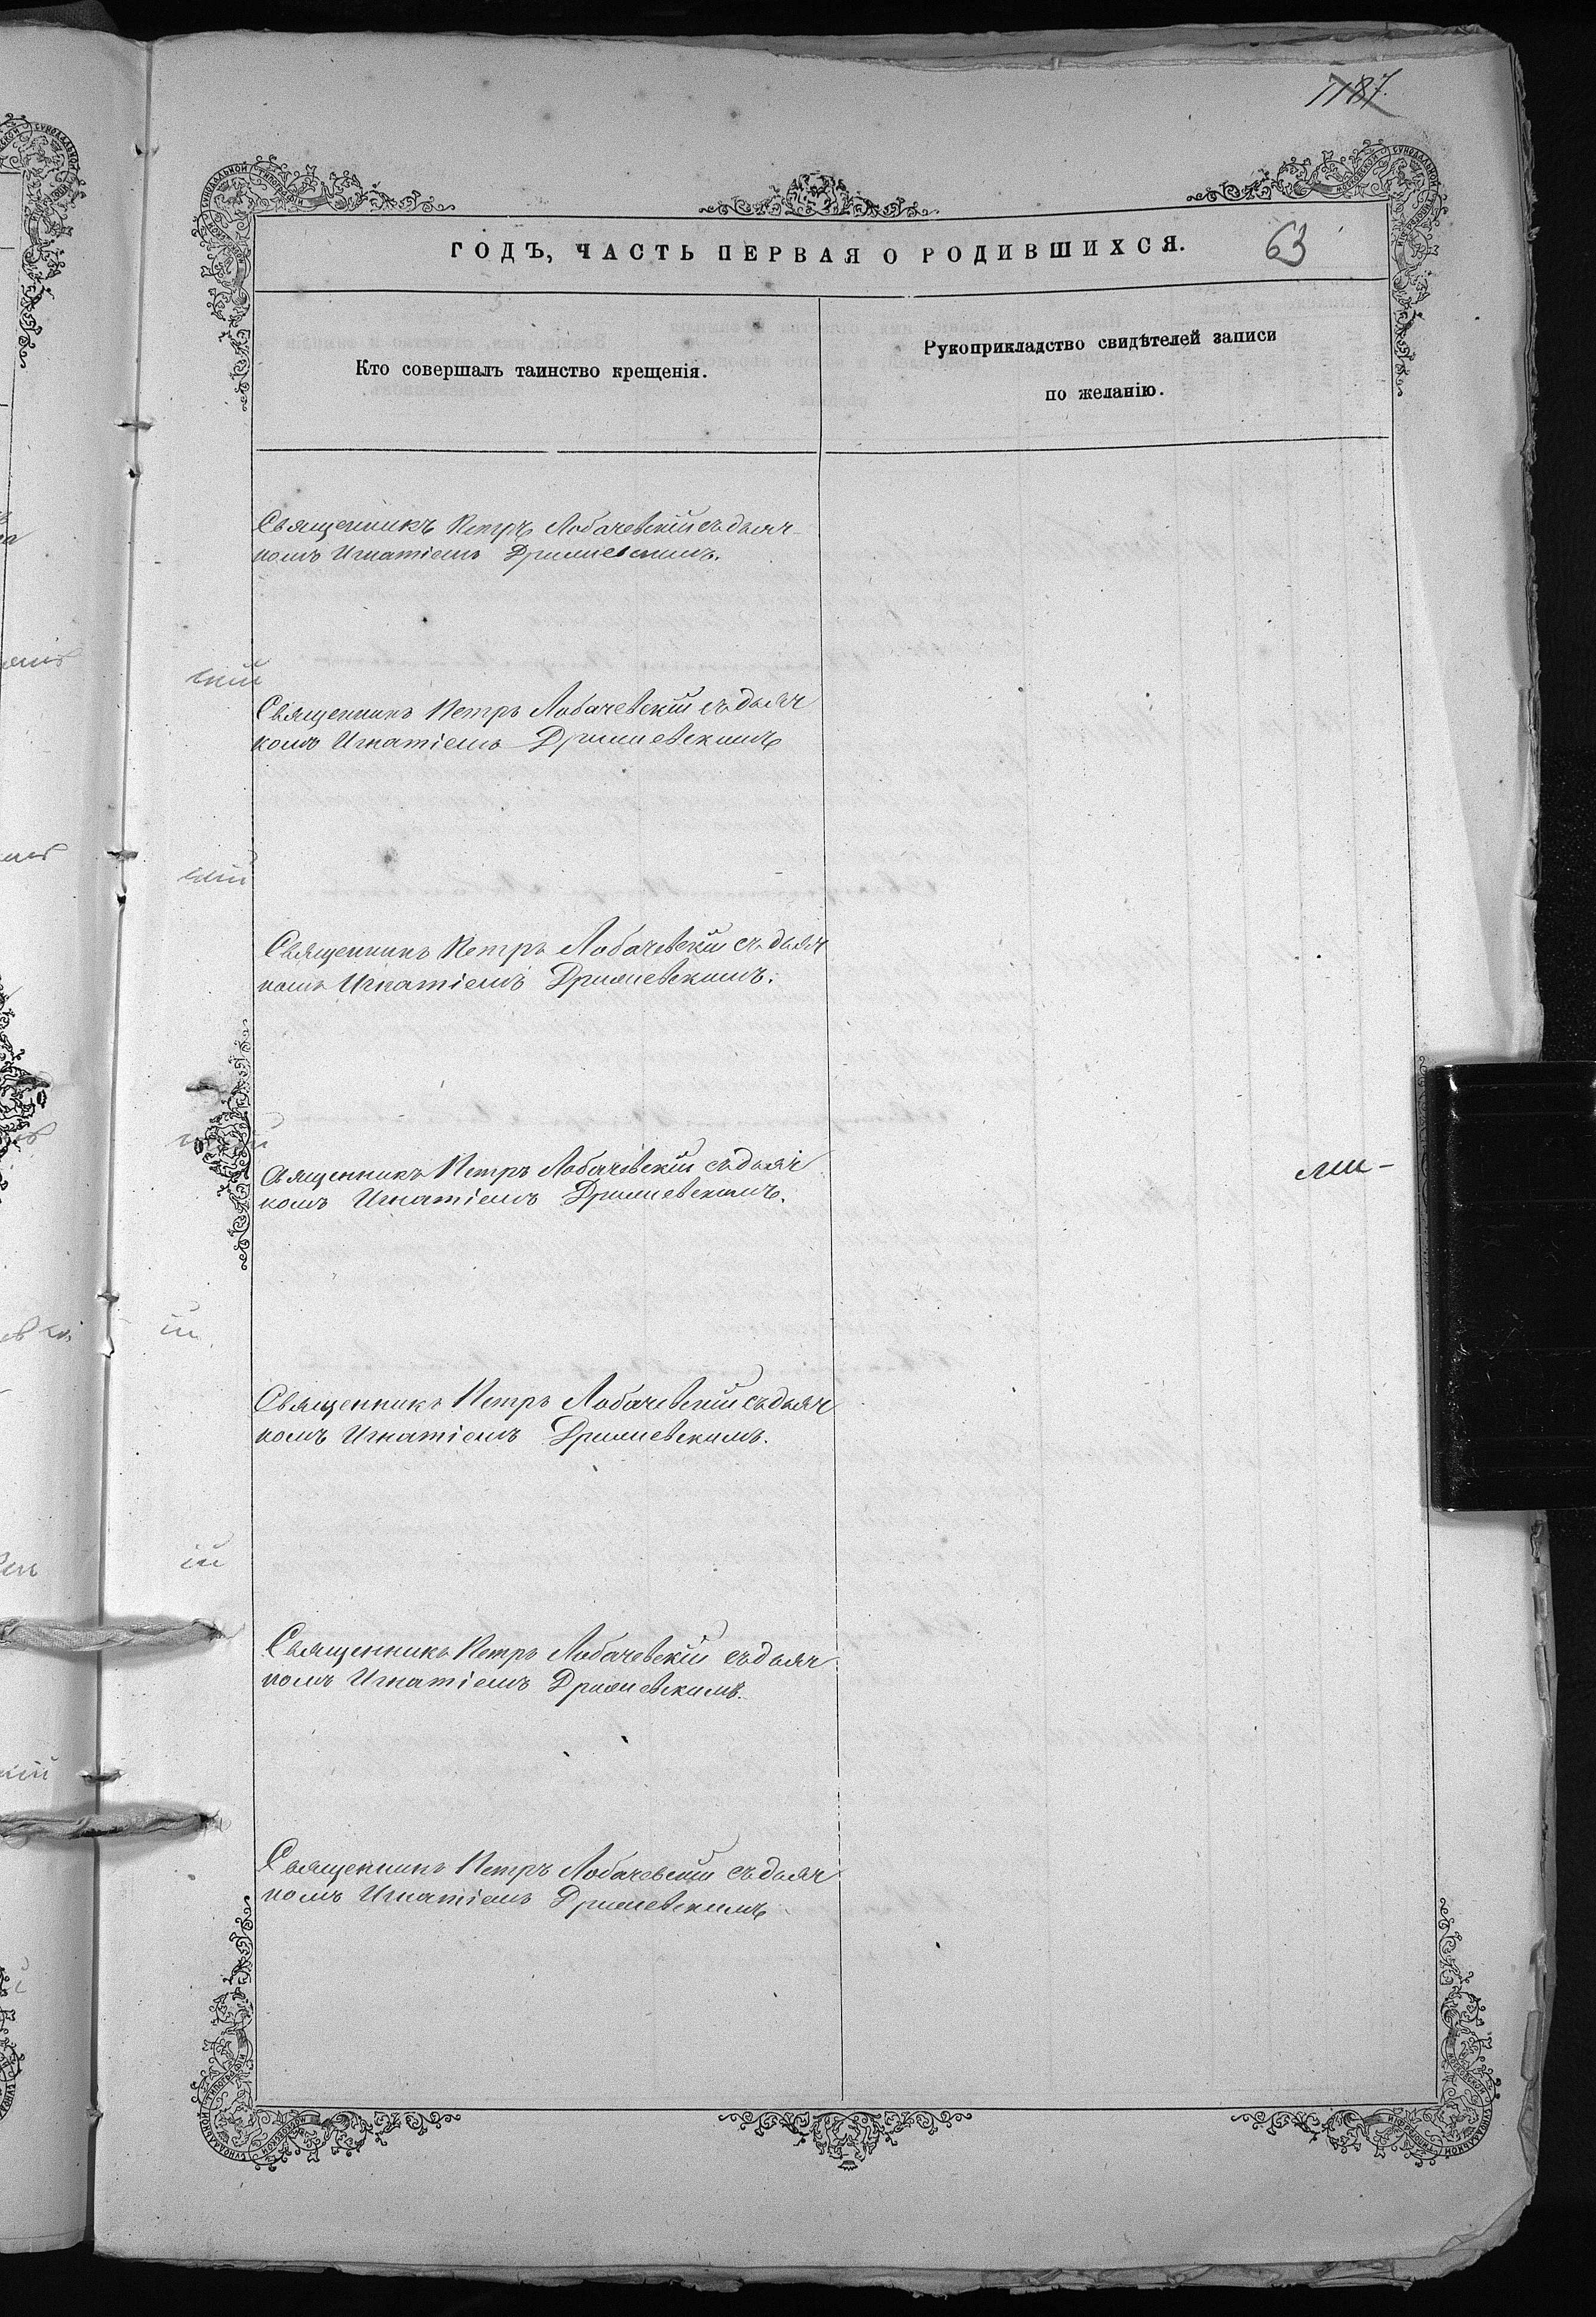 187.
ГОДЪ, ЧАСТЬ ПЕРВАЯ О РОДИВШИХСЯ.
63
Кто совершалъ таинство крещенія.
Рукоприкладство свидѣтелей записи
по желанію.
Священникъ Петръ Лобачевскій съ дьяч-
комъ Игнатіемъ Дримиевскимъ.
скій
Священникъ Петръ Лобачевскій съ дьяч
комъ Игнатіемъ Дримиевскимъ
скій
Священникъ Петръ Лобачевскій съ дьяч
комъ Игнатіемъ Дримиевскимъ.
Священникъ Петръ Лобачевскій съ дьяч
комъ Игнатіемъ Дримиевскимъ.
ми-
ій
Священникъ Петръ Лобачевскій съ дьяч
комъ Игнатіемъ Дримиевскимъ.
ій
Священникъ Петръ Лобачевскій съ дьяч
комъ Игнатіемъ Дримиевскимъ.
Священникъ Петръ Лобачевскій съ дьяч
комъ Игнатіемъ Дримиевскимъ